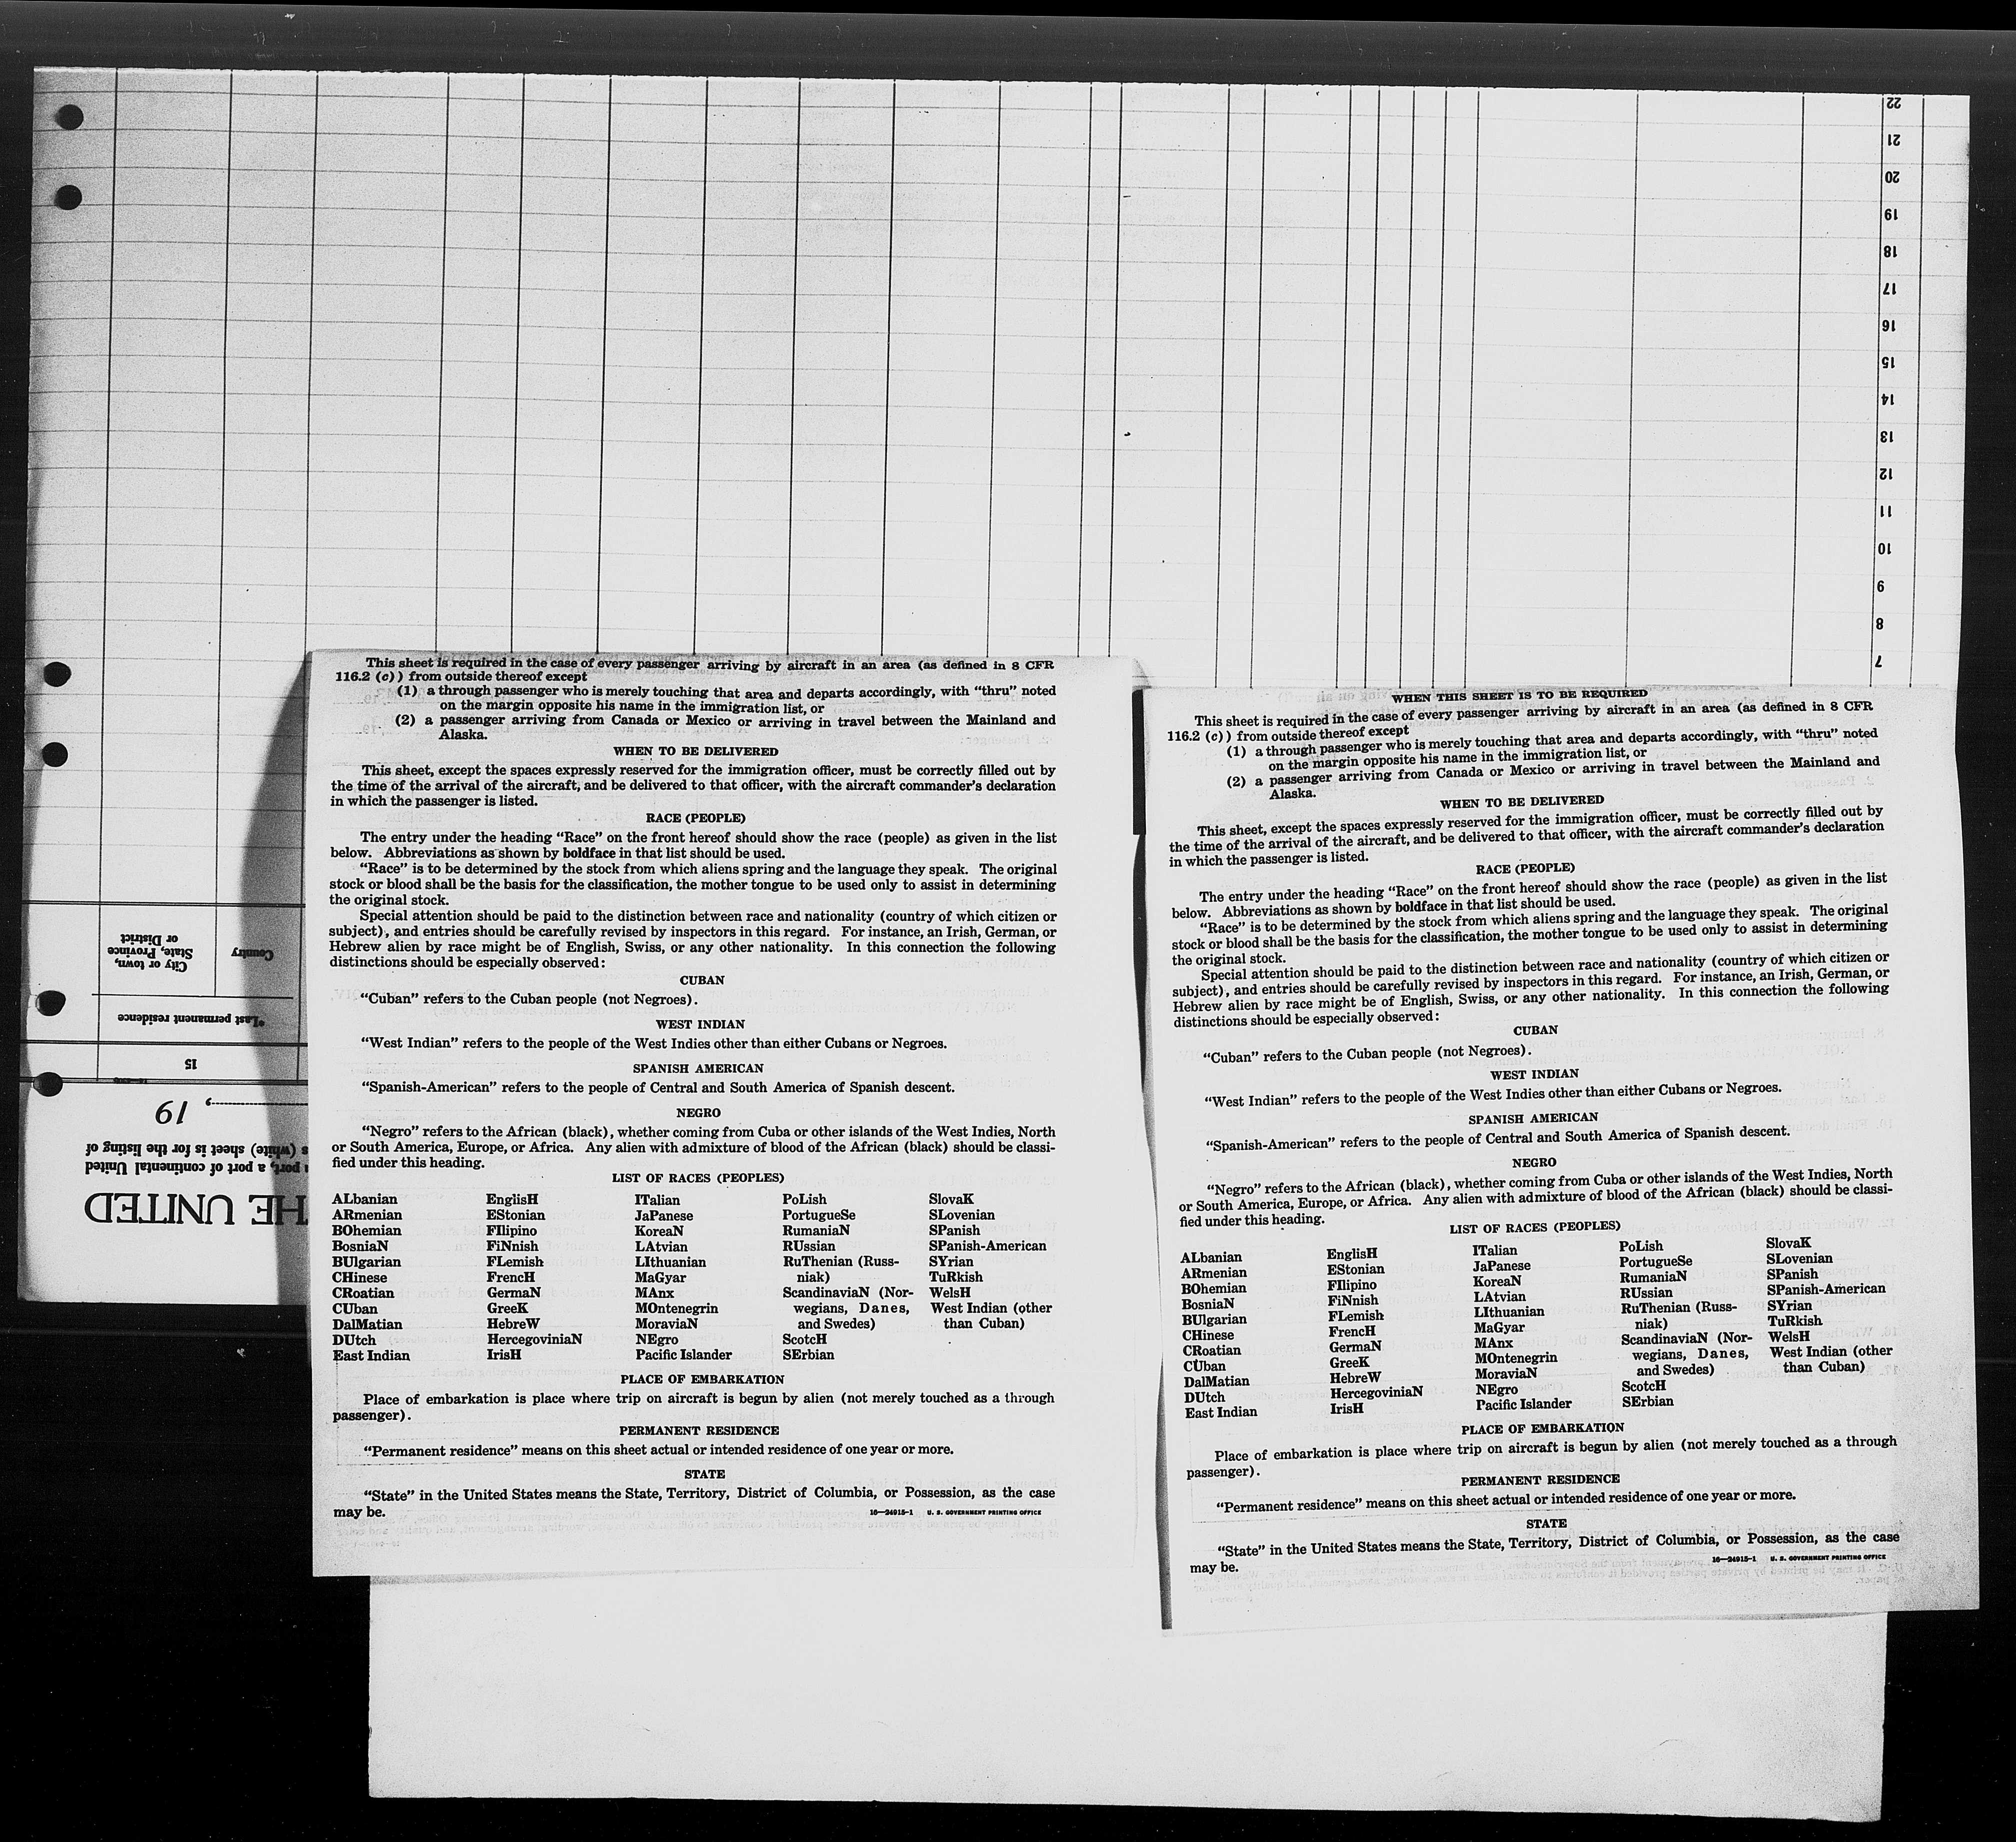 22
21
20
19
18
17
16
15
14
13
12
11
10
9
8
7
HE UNITED
port, a port of continental United
s (white) sheet is for the listing of
, 19
15
*Last permanent residence
City or town,
State, Province
or District
Country
This sheet is required in the case of every passenger arriving by aircraft in an area (as defined in 8 CFR
116.2 (c)) from outside thereof except
(1) a through passenger who is merely touching that area and departs accordingly, with “thru” noted
on the margin opposite his name in the immigration list, or
(2) a passenger arriving from Canada or Mexico or arriving in travel between the Mainland and
Alaska.
WHEN TO BE DELIVERED
This sheet, except the spaces expressly reserved for the immigration officer, must be correctly filled out by
the time of the arrival of the aircraft, and be delivered to that officer, with the aircraft commander’s declaration
in which the passenger is listed.
RACE (PEOPLE)
The entry under the heading “Race” on the front hereof should show the race (people) as given in the list
below. Abbreviations as shown by boldface in that list should be used.
“Race” is to be determined by the stock from which aliens spring and the language they speak. The original
stock or blood shall be the basis for the classification, the mother tongue to be used only to assist in determining
the original stock.
Special attention should be paid to the distinction between race and nationality (country of which citizen or
subject), and entries should be carefully revised by inspectors in this regard. For instance, an Irish, German, or
Hebrew alien by race might be of English, Swiss, or any other nationality. In this connection the following
distinctions should be especially observed:
CUBAN
“Cuban” refers to the Cuban people (not Negroes).
WEST INDIAN
“West Indian” refers to the people of the West Indies other than either Cubans or Negroes.
SPANISH AMERICAN
“Spanish-American” refers to the people of Central and South America of Spanish descent.
NEGRO
“Negro” refers to the African (black), whether coming from Cuba or other islands of the West Indies, North
or South America, Europe, or Africa. Any alien with admixture of blood of the African (black) should be classi-
fied under this heading.
LIST OF RACES (PEOPLES)
ALbanian
ARmenian
BOhemian
BosniaN
BUlgarian
CHinese
CRoatian
CUban
DalMatian
DUtch
East Indian
EnglisH
EStonian
FIlipino
FiNnish
FLemish
FrencH
GermaN
GreeK
HebreW
HercegoviniaN
IrisH
ITalian
JaPanese
KoreaN
LAtvian
LIthuanian
MaGyar
MAnx
MOntenegrin
MoraviaN
NEgro
Pacific Islander
PoLish
PortugueSe
RumaniaN
RUssian
RuThenian (Russ-
niak)
ScandinaviaN (Nor-
wegians, Danes,
and Swedes)
ScotcH
SErbian
SlovaK
SLovenian
SPanish
SPanish-American
SYrian
TuRkish
WelsH
West Indian (other
than Cuban)
PLACE OF EMBARKATION
Place of embarkation is place where trip on aircraft is begun by alien (not merely touched as a through
passenger).
PERMANENT RESIDENCE
“Permanent residence” means on this sheet actual or intended residence of one year or more.
STATE
“State” in the United States means the State, Territory, District of Columbia, or Possession, as the case
may be.
16—24915-1 U. S. GOVERNMENT PRINTING OFFICE
WHEN THIS SHEET IS TO BE REQUIRED
This sheet is required in the case of every passenger arriving by aircraft in an area (as defined in 8 CFR
116.2 (c)) from outside thereof except
(1) a through passenger who is merely touching that area and departs accordingly, with “thru” noted
on the margin opposite his name in the immigration list, or
(2) a passenger arriving from Canada or Mexico or arriving in travel between the Mainland and
Alaska.
WHEN TO BE DELIVERED
This sheet, except the spaces expressly reserved for the immigration officer, must be correctly filled out by
the time of the arrival of the aircraft, and be delivered to that officer, with the aircraft commander’s declaration
in which the passenger is listed.
RACE (PEOPLE)
The entry under the heading “Race” on the front hereof should show the race (people) as given in the list
below. Abbreviations as shown by boldface in that list should be used.
“Race” is to be determined by the stock from which aliens spring and the language they speak. The original
stock or blood shall be the basis for the classification, the mother tongue to be used only to assist in determining
the original stock.
Special attention should be paid to the distinction between race and nationality (country of which citizen or
subject), and entries should be carefully revised by inspectors in this regard. For instance, an Irish, German, or
Hebrew alien by race might be of English, Swiss, or any other nationality. In this connection the following
distinctions should be especially observed:
CUBAN
“Cuban” refers to the Cuban people (not Negroes).
WEST INDIAN
“West Indian” refers to the people of the West Indies other than either Cubans or Negroes.
SPANISH AMERICAN
“Spanish-American” refers to the people of Central and South America of Spanish descent.
NEGRO
“Negro” refers to the African (black), whether coming from Cuba or other islands of the West Indies, North
or South America, Europe, or Africa. Any alien with admixture of blood of the African (black) should be classi-
fied under this heading.
LIST OF RACES (PEOPLES)
ALbanian
ARmenian
BOhemian
BosniaN
BUlgarian
CHinese
CRoatian
CUban
DalMatian
DUtch
East Indian
EnglisH
EStonian
FIlipino
FiNnish
FLemish
FrencH
GermaN
GreeK
HebreW
HercegoviniaN
IrisH
ITalian
JaPanese
KoreaN
LAtvian
LIthuanian
MaGyar
MAnx
MOntenegrin
MoraviaN
NEgro
Pacific Islander
PoLish
PortugueSe
RumaniaN
RUssian
RuThenian (Russ-
niak)
ScandinaviaN (Nor-
wegians, Danes,
and Swedes)
ScotcH
SErbian
SlovaK
SLovenian
SPanish
SPanish-American
SYrian
TuRkish
WelsH
West Indian (other
than Cuban)
PLACE OF EMBARKATION
Place of embarkation is place where trip on aircraft is begun by alien (not merely touched as a through
passenger).
PERMANENT RESIDENCE
“Permanent residence” means on this sheet actual or intended residence of one year or more.
STATE
“State” in the United States means the State, Territory, District of Columbia, or Possession, as the case
may be.
16—24915-1 U. S. GOVERNMENT PRINTING OFFICE